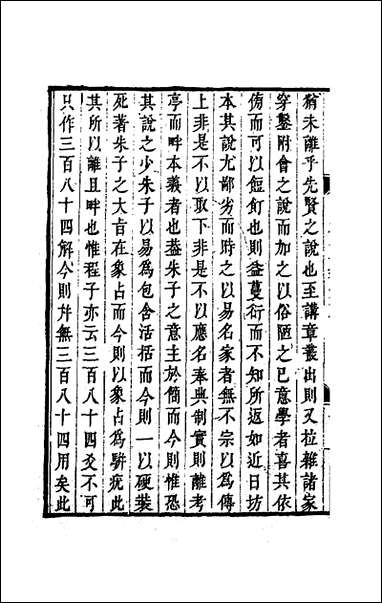 猶未離乎先賢之說也至講章叢出則又拉雜諸家
穿鑿附會之說而加之以俗陋之己意學者喜其依
傍而可以餖飣也則益蔓衍而不知所返如近日坊
本其說尤鄙劣而時之以易名家者無不宗以為傳
上非是不以取下非是不以應名奉典制實則離考
亭而畔本義者也蓋朱子之意主於簡而今則惟恐
其說之少朱子以易為包含活括而今則一以硬裝
死著朱子之大旨在象占而今則以象占為駢疣此
其所以離且畔也惟程子亦云三百八十四爻不可
只作三百八十四解今則幷無三百八十四用矣此